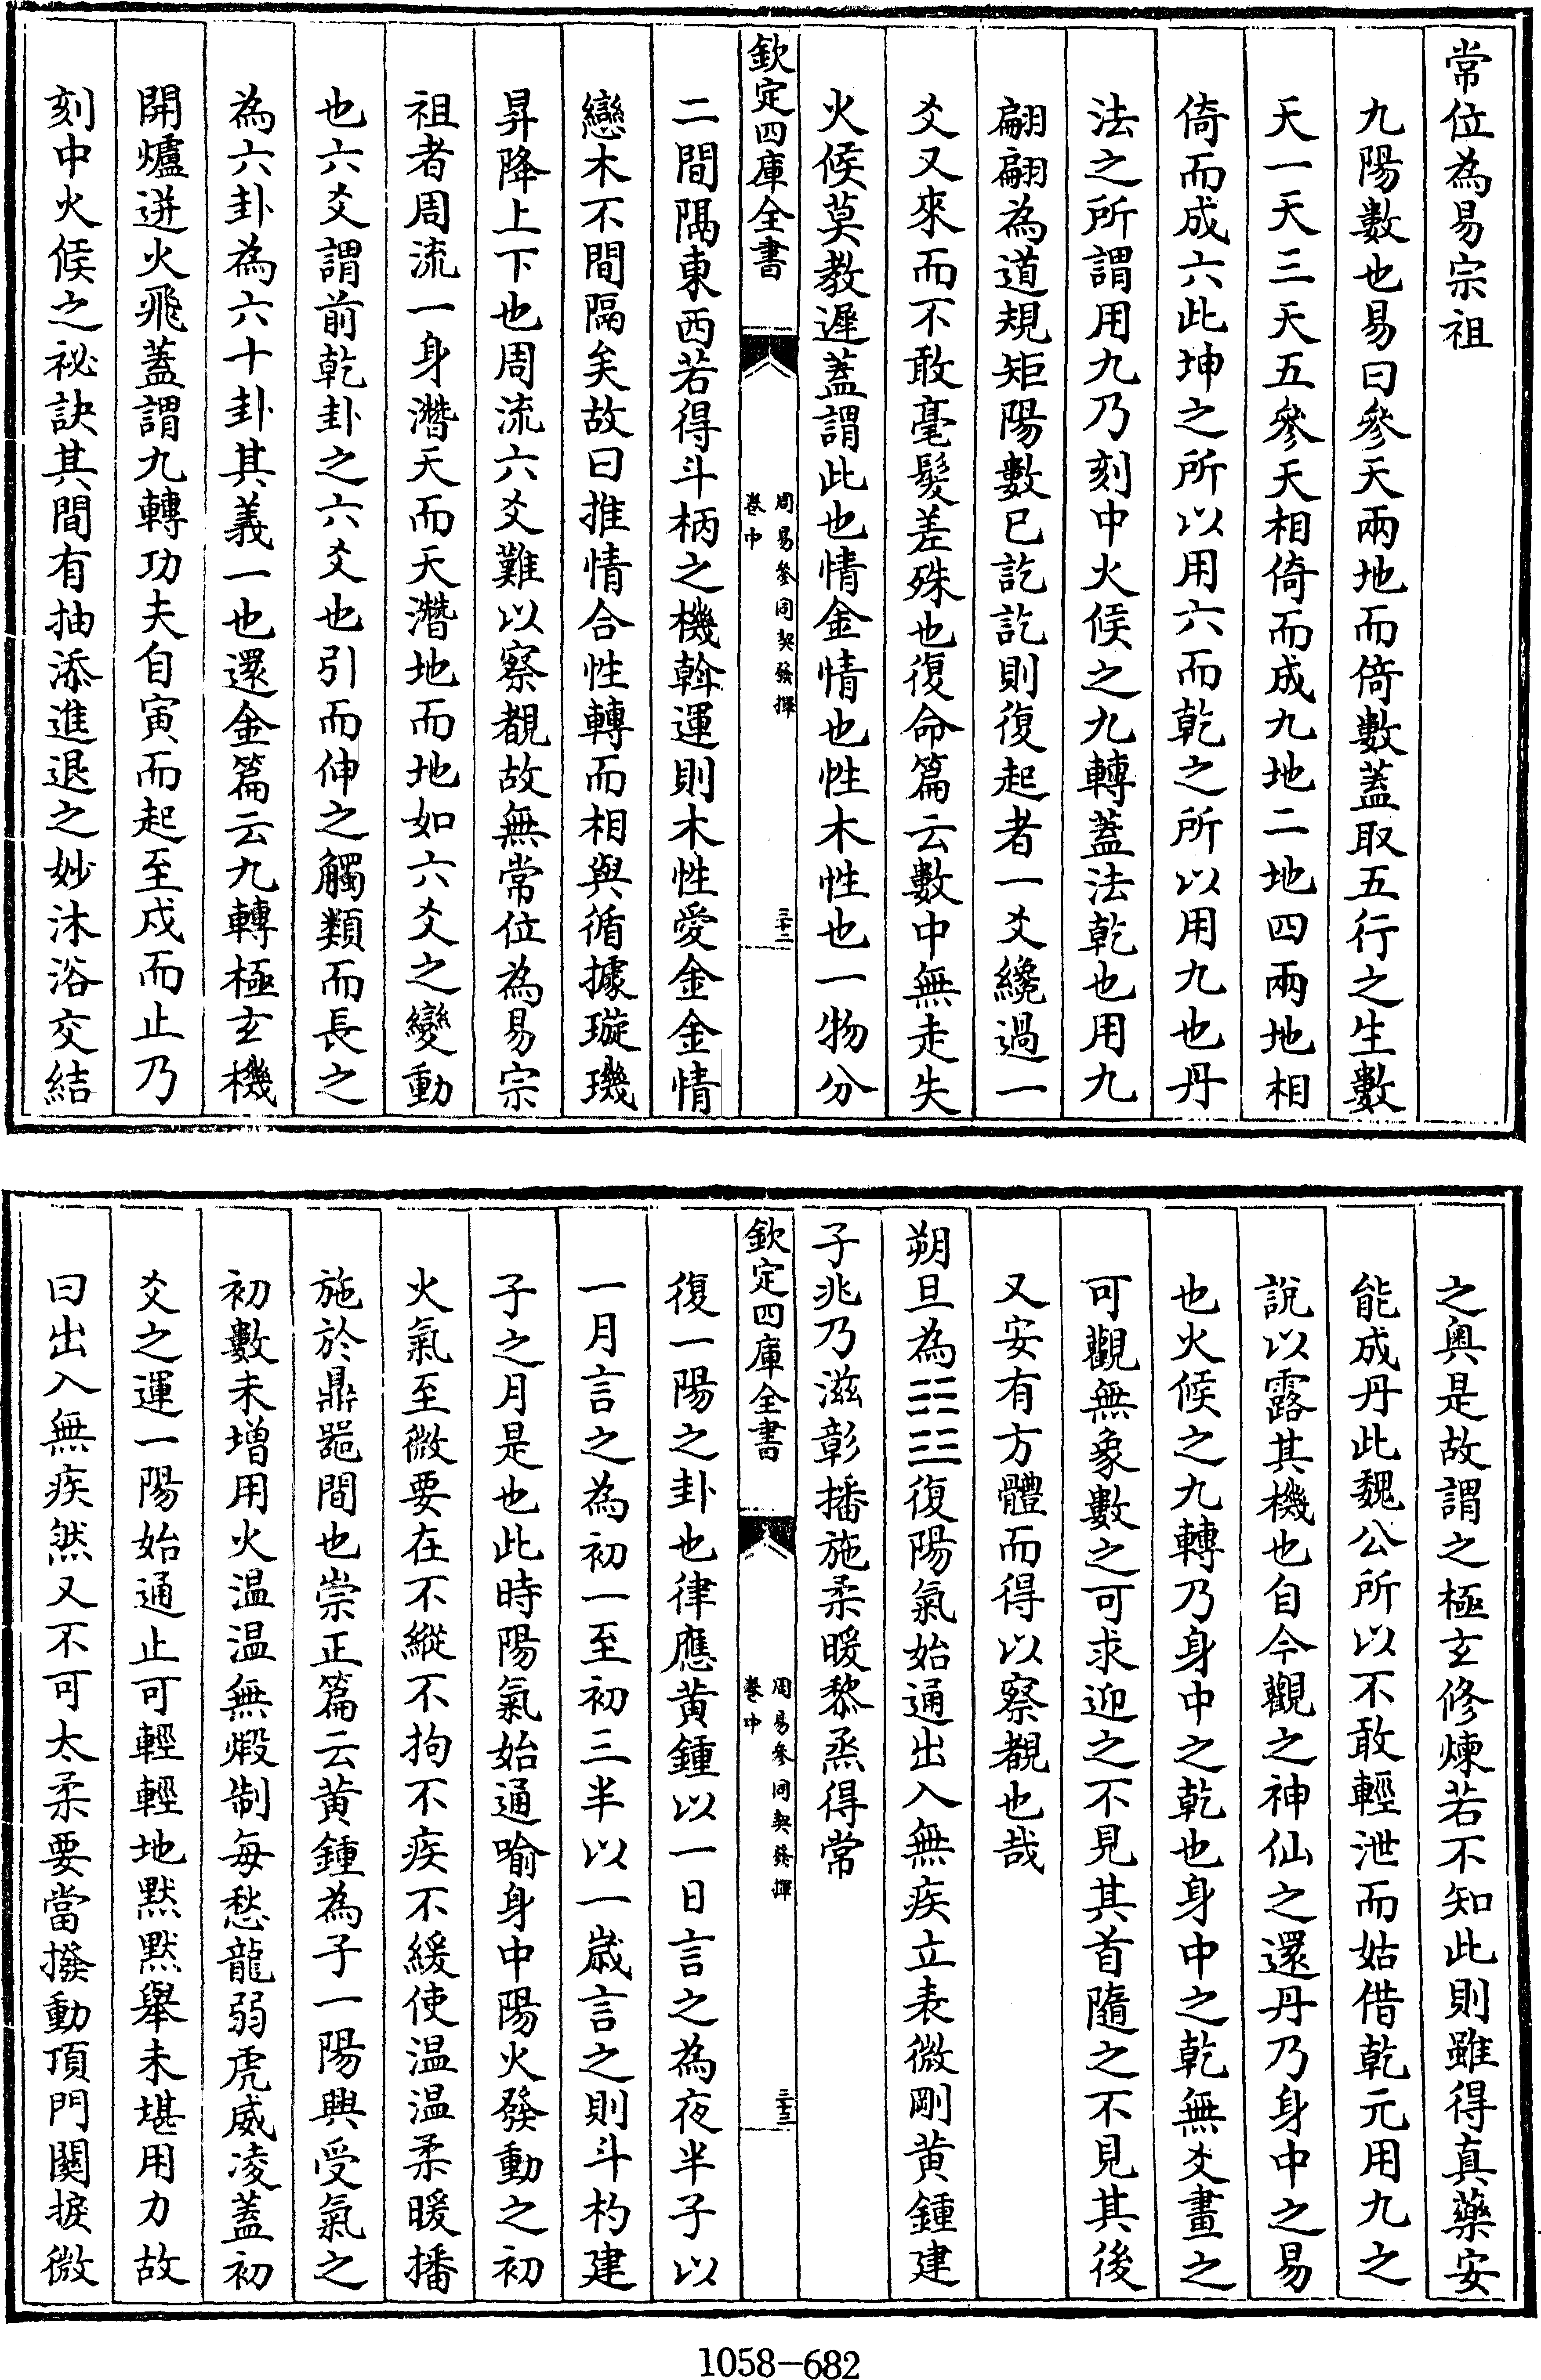 常位為易宗祖
九陽數也易曰參天兩地而倚數蓋取五行之生數
天一天三天五參天相倚而成九地二地四兩地相
倚而成六此坤之所以用六而乾之所以用九也丹
法之所謂用九乃刻中火候之九轉蓋法乾也用九
翩翩為道規矩陽數已訖訖則復起者一爻纔過一
爻又來而不敢毫髮差殊也復命篇云數中無走失
火候莫教遲蓋謂此也情金情也性木性也一物分
欽定四庫全書
周易參同契發揮
卷中
三十二
二間隔東西若得斗柄之機斡運則木性愛金金情
戀木不間隔矣故曰推情合性轉而相與循據璇璣
昇降上下也周流六爻難以察覩故無常位為易宗
祖者周流一身潛天而天潛地而地如六爻之變動
也六爻謂前乾卦之六爻也引而伸之觸類而長之
為六卦為六十卦其義一也還金篇云九轉極玄機
開爐迸火飛蓋謂九轉功夫自寅而起至戌而止乃
刻中火候之祕訣其間有抽添進退之妙沐浴交結
之奧是故謂之極玄修煉若不知此則雖得真藥安
能成丹此魏公所以不敢輕泄而姑借乾元用九之
說以露其機也自今觀之神仙之還丹乃身中之易
也火候之九轉乃身中之乾也身中之乾無爻畫之
可觀無象數之可求迎之不見其首隨之不見其後
又安有方體而得以察覩也哉
朔旦為䷗復陽氣始通出入無疾立表微剛黃鍾建
子兆乃滋彰播施柔暖黎烝得常
欽定四庫全書
周易參同契發揮
卷中
三十三
復一陽之卦也律應黃鍾以一日言之為夜半子以
一月言之為初一至初三半以一歲言之則斗杓建
子之月是也此時陽氣始通喻身中陽火發動之初
火氣至微要在不縱不拘不疾不緩使温温柔暖播
施於鼎器間也崇正篇云黃鍾為子一陽興受氣之
初數未增用火温温無煅制每愁龍弱虎威凌蓋初
爻之運一陽始通止可輕輕地默默舉未堪用力故
曰出入無疾然又不可太柔要當撥動頂門關捩微
1058-682